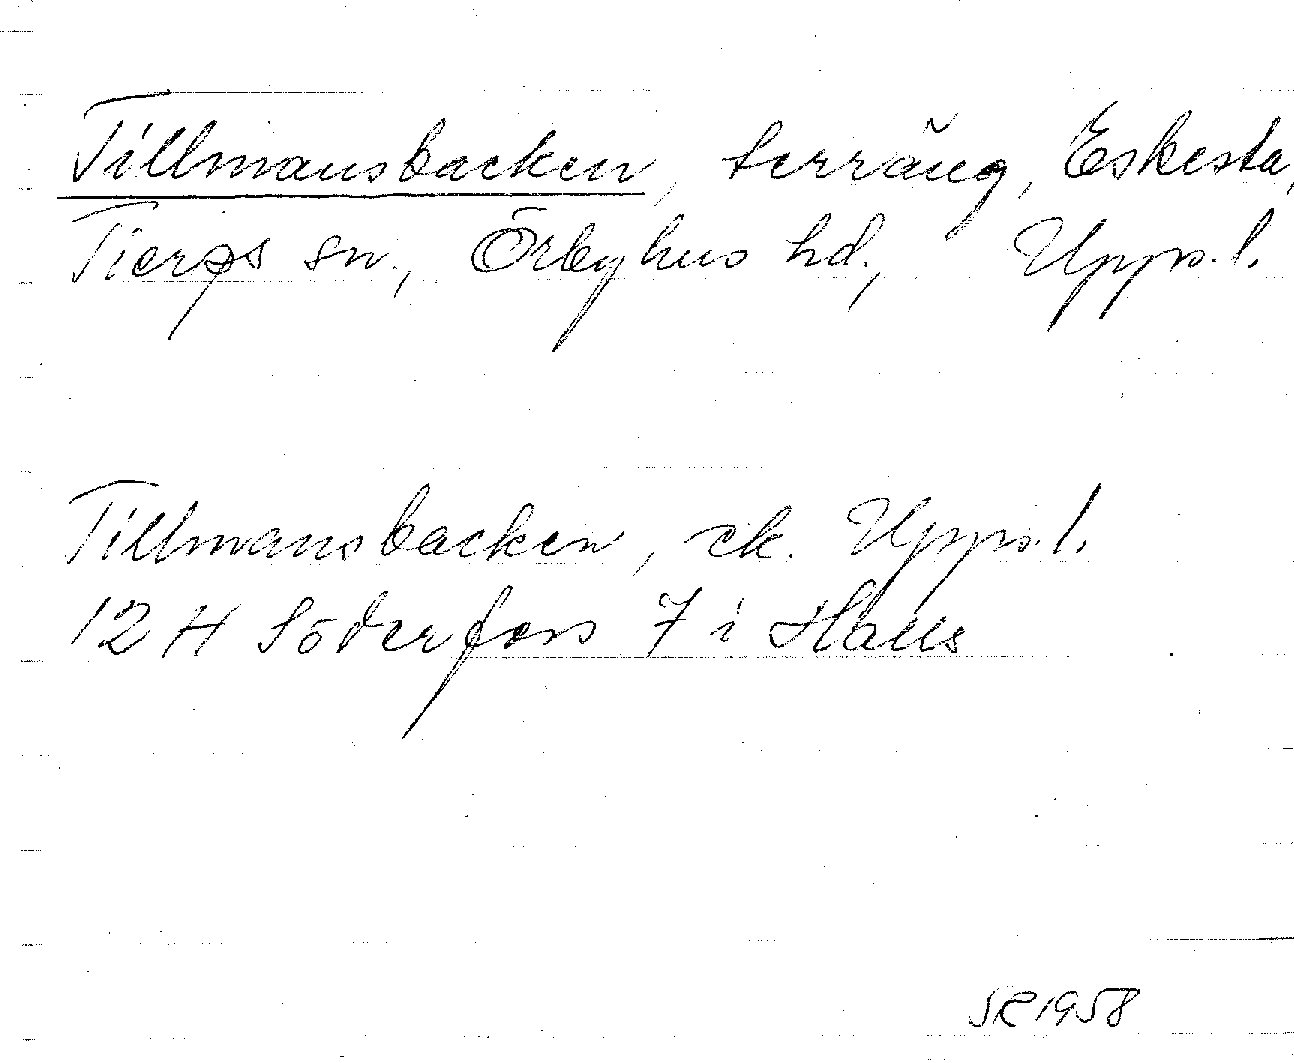 Tillmansbacken, terräng, Eskesta,
Tierps sn., Örbyhus hd., Upps.l.
Tillmansbacken, ek. Upps.l.
12 H Söderfors 7 i Halls
SR 1958